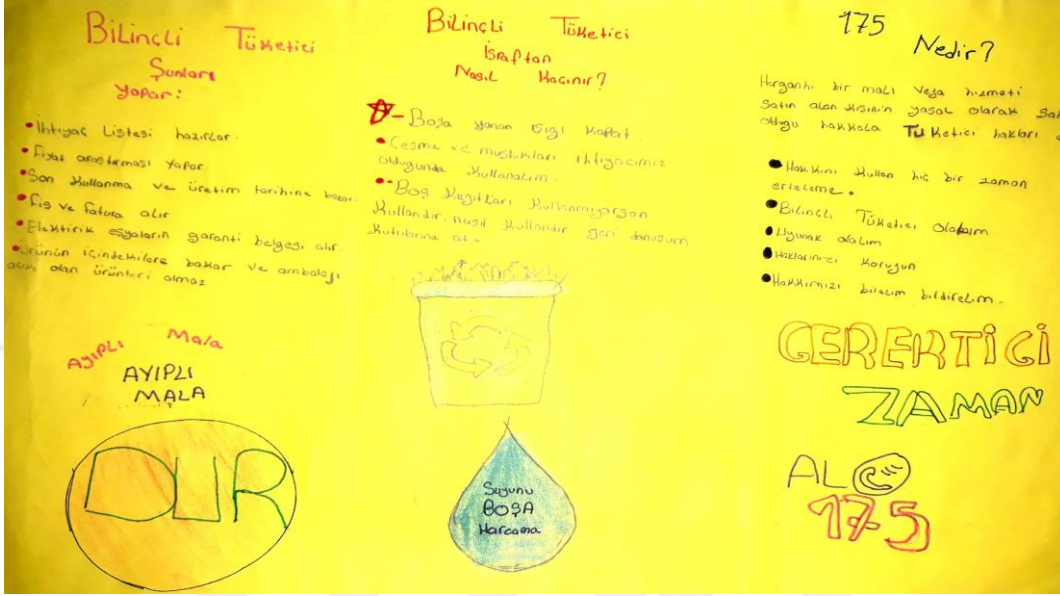 BiLinçLi Tüketici
Şunları
yapar:
• İhtiyaç Listesi hazırlar.
• Fiyat araştırması yapar.
• Son kullanma ve üretim tarihine bakar.
• Fiş ve fatura alır
• Elektirik eşyaların garanti belgesi alır.
• Ürünün içindekilere bakar ve ambalajı
açık olan ürünleri almaz
AyıPLı Mala
AYIPLI
MALA
DUR
BiLinçLi Tüketici
İsraftan
Nasıl Kaçınır?
- Boşa yanan ışığı kapat.
• Çeşme ve muslukları ihtiyacımız
olduğunda kullanalım.
•-Boş kağıtları kullanmıyorsan
kullandır, nasıl kullandır geri dönüşüm
kutubuna at.
Suyunu
BOŞA
Harcama
175
Nedir?
Herganhi bir malı veya hizmeti
Satın alan kişinin yasal olarak
olduğu hakkala Tüketici hakları
• Hakkını kullan hiç bir zaman
erteleme.
• Bilinçli Tüketici olalım
• Uyanık olalım
• Haklarınızı koruyun
• Hakkımızı bilelim bildirelim.
GEREKTİĞİ
ZAMAN
ALO
175